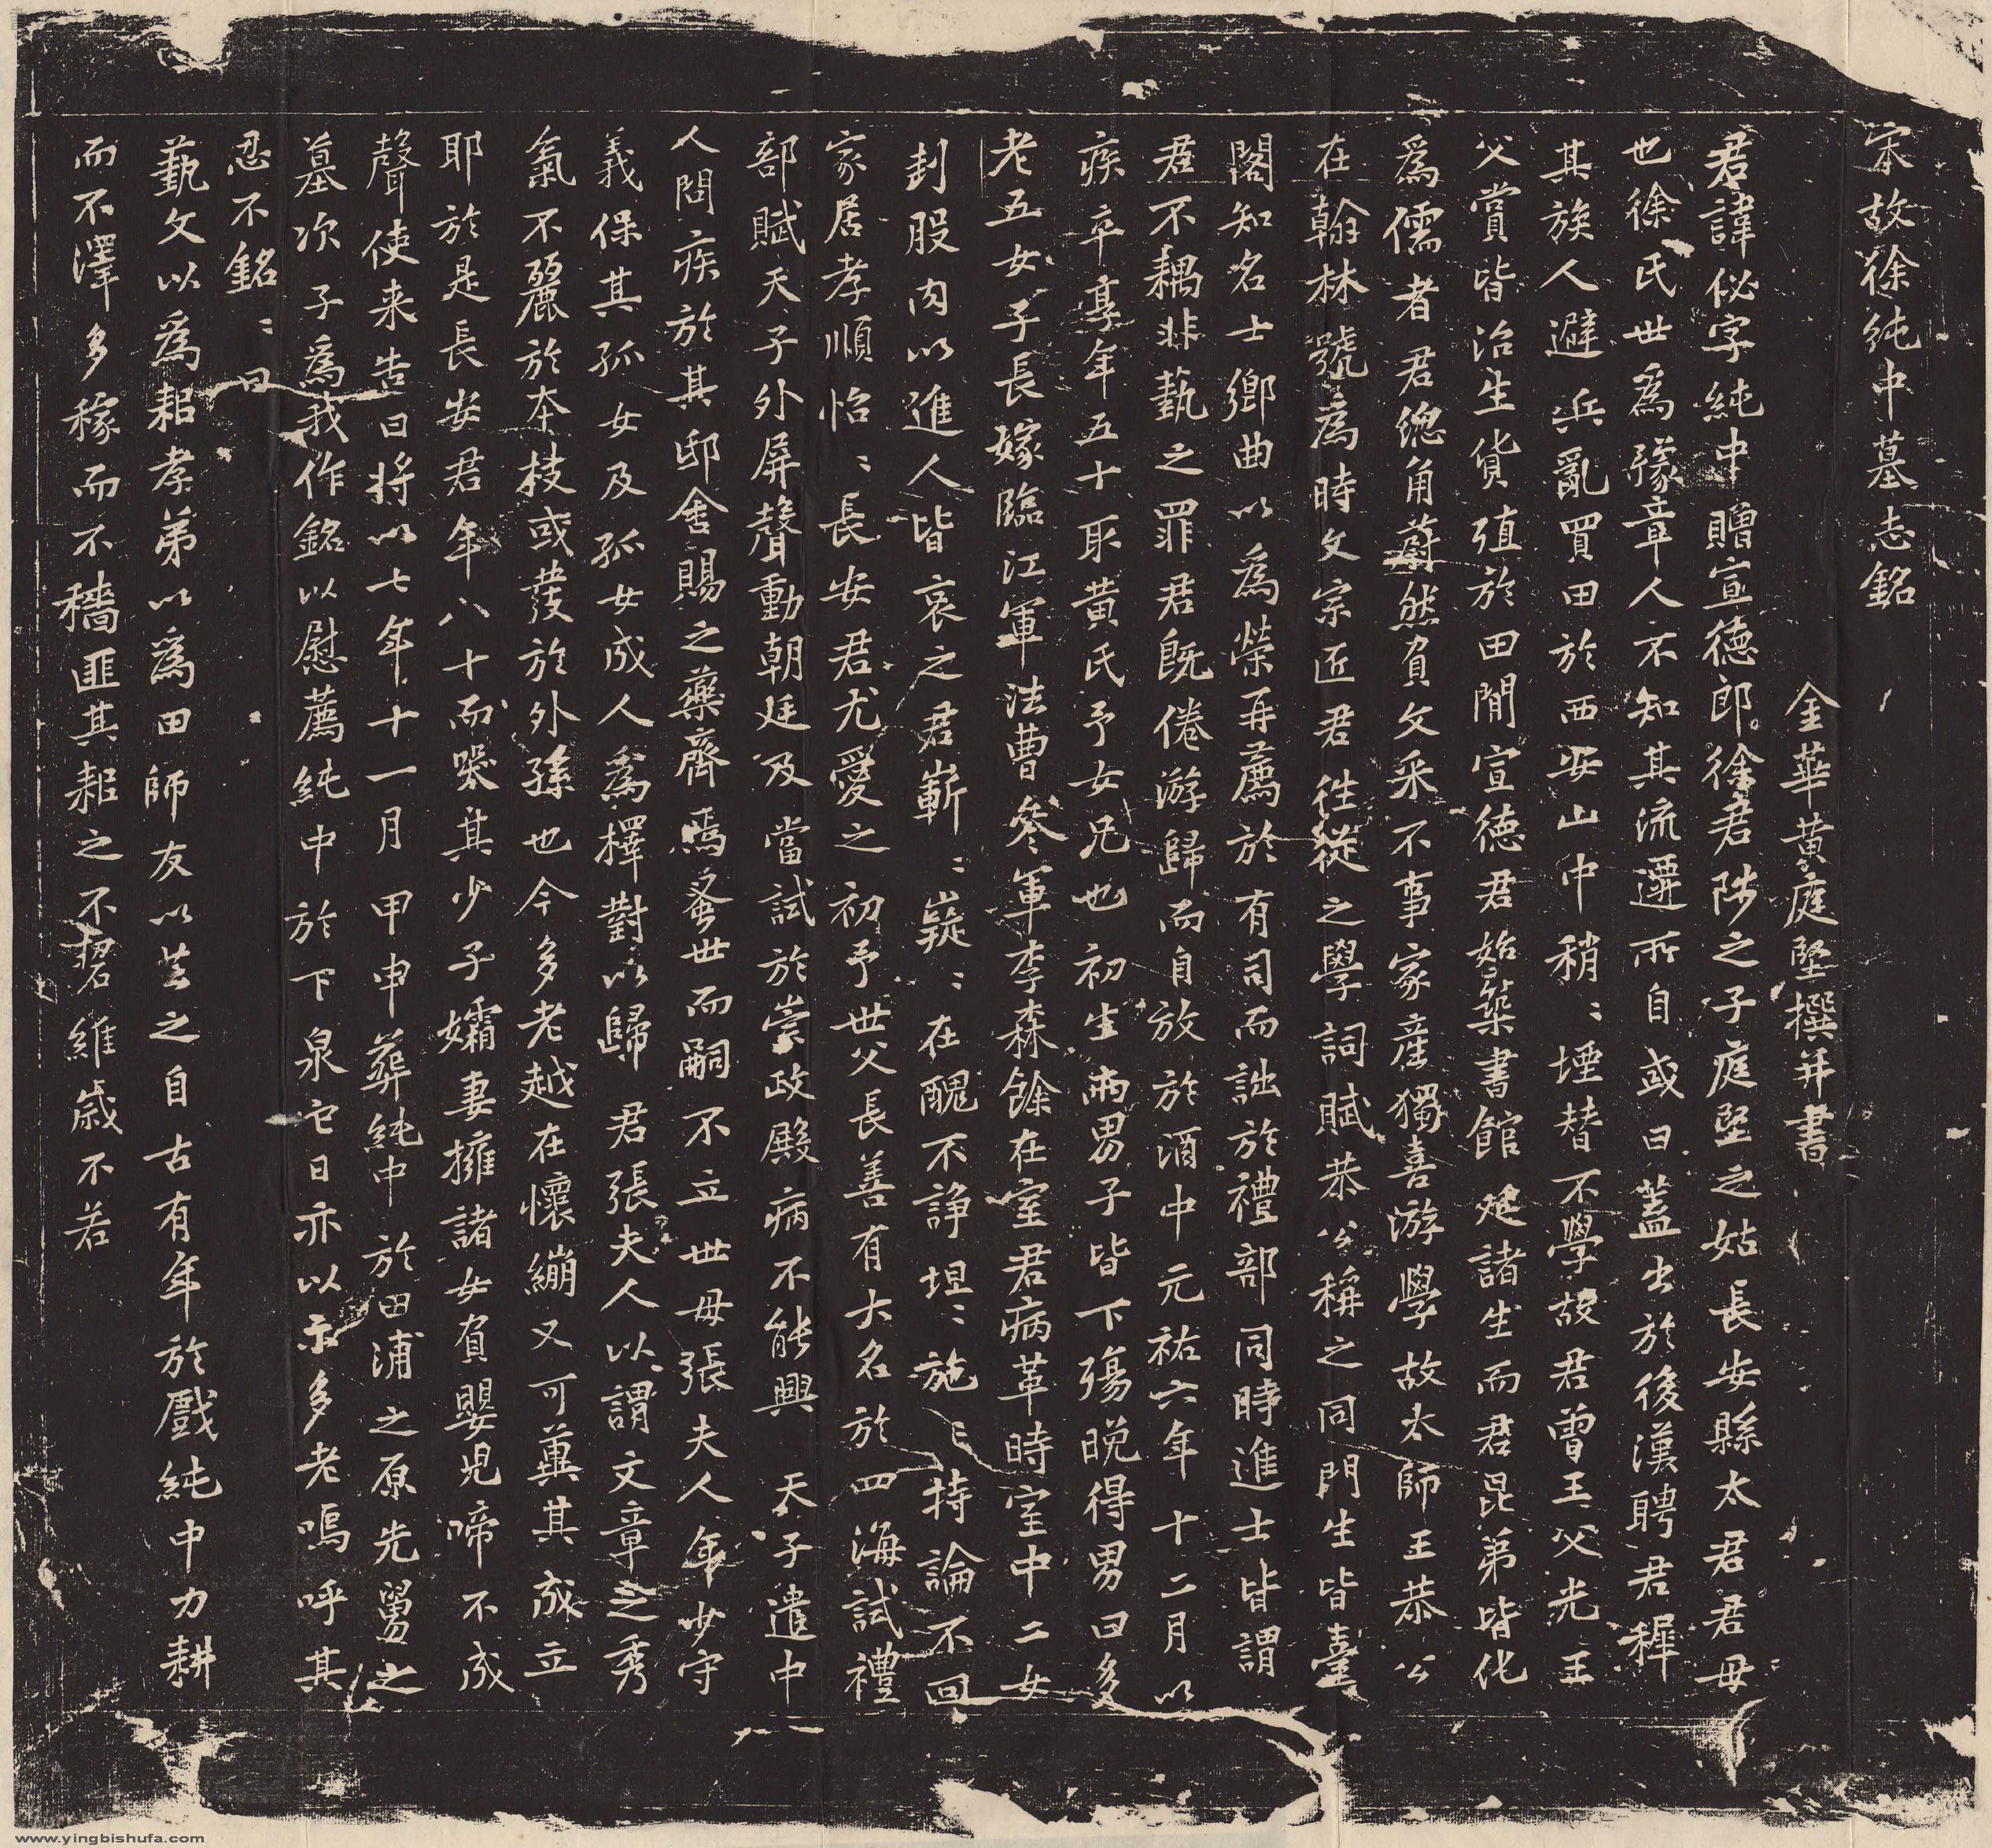 宋故徐純中墓志銘
金華黃庭堅撰并書
君諱佖字純中贈宣德郎徐君陟之子庭堅之姑長安縣太君君母
也徐氏世為豫章人不知其流遷所自或曰蓋出於後漢聘君穉
其族人避兵亂買田於西安山中稍〻堙替不學故君曾王父光王
父賞皆治生貨殖於田間宣德君始築書館延諸生而君昆弟皆化
為儒者君總角蔚然負文采不事家產獨喜游學故太師王恭公
在翰林號為時文宗匠君往從之學詞賦恭公稱之同門生皆臺
閣知名士鄉曲以為榮再薦於有司而詘於禮部同時進士皆謂
君不耦非藝之罪君既倦游歸而自放於酒中元祐六年十二月以
疾卒享年五十取黃氏予女兄也初生兩男子皆下殤晚得男曰多
老五女子長嫁臨江軍法曹參軍李森餘在室君病革時室中二女
刲股肉以進人皆哀之君嶄〻嶷〻在醜不諍坦〻施〻持論不回
家居孝順怡〻長安君尤愛之初予世父長善有大名於四海試禮
部賦天子外屏聲動朝廷及當試於崇政殿病不能興 天子遣中
人問疾於其邸舍賜之藥齊焉蚤世而嗣不立世母張夫人年少守
義保其孤女及孤女成人為擇對以歸 君張夫人以謂文章之秀
氣不麗於本枝或發於外孫也今多老越在懷繃又可冀其成立
耶於是長安君年八十而哭其少子孀妻擁諸女負嬰兒啼不成
聲使来告曰將以七年十一月 甲申葬純中於田浦之原先舅之
墓次子為我作銘以慰薦純中於下泉它日亦以示多老嗚呼其
忍不銘〻曰
蓺文以為耜孝弟以為田師友以芸之自古有年於戲純中力耕
而不澤多稼而不穡匪其耜之不耜維歲不若